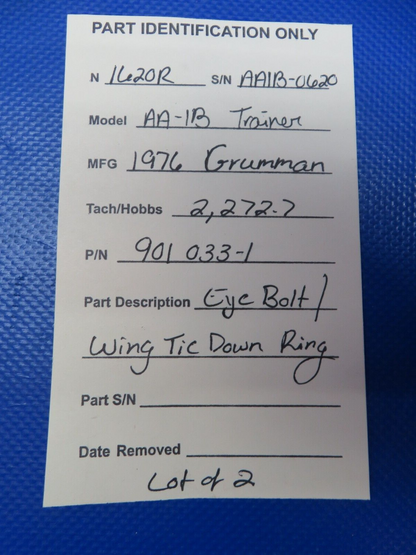 PART IDENTIFICATION ONLY
N 1620R S/N AA1B-0620
Model AA-1B Trainer
MFG 1976 Grumman
Tach/Hobbs 2,272.7
P/N 901 033-1
Part Description Eye Bolt/
Wing Tie Down Ring
Part S/N
Date Removed
Lot of 2